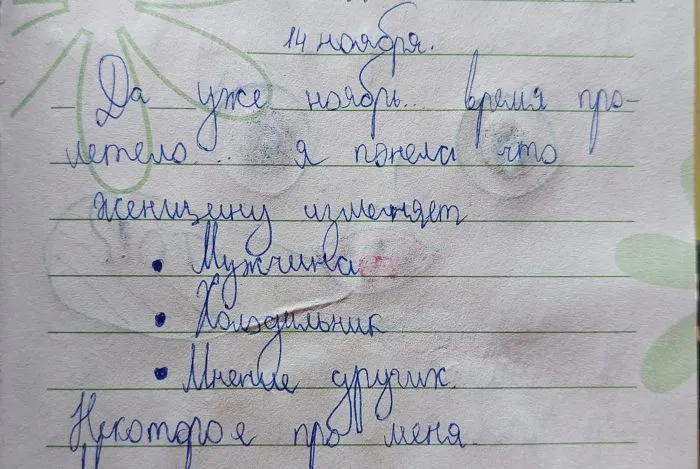 14 ноября.
Да уже ноябрь.. время про-
летело... я понела что
женщину изменяет
• Мужчина
• Холодильник
• Мнение других.
Некоторое про меня.